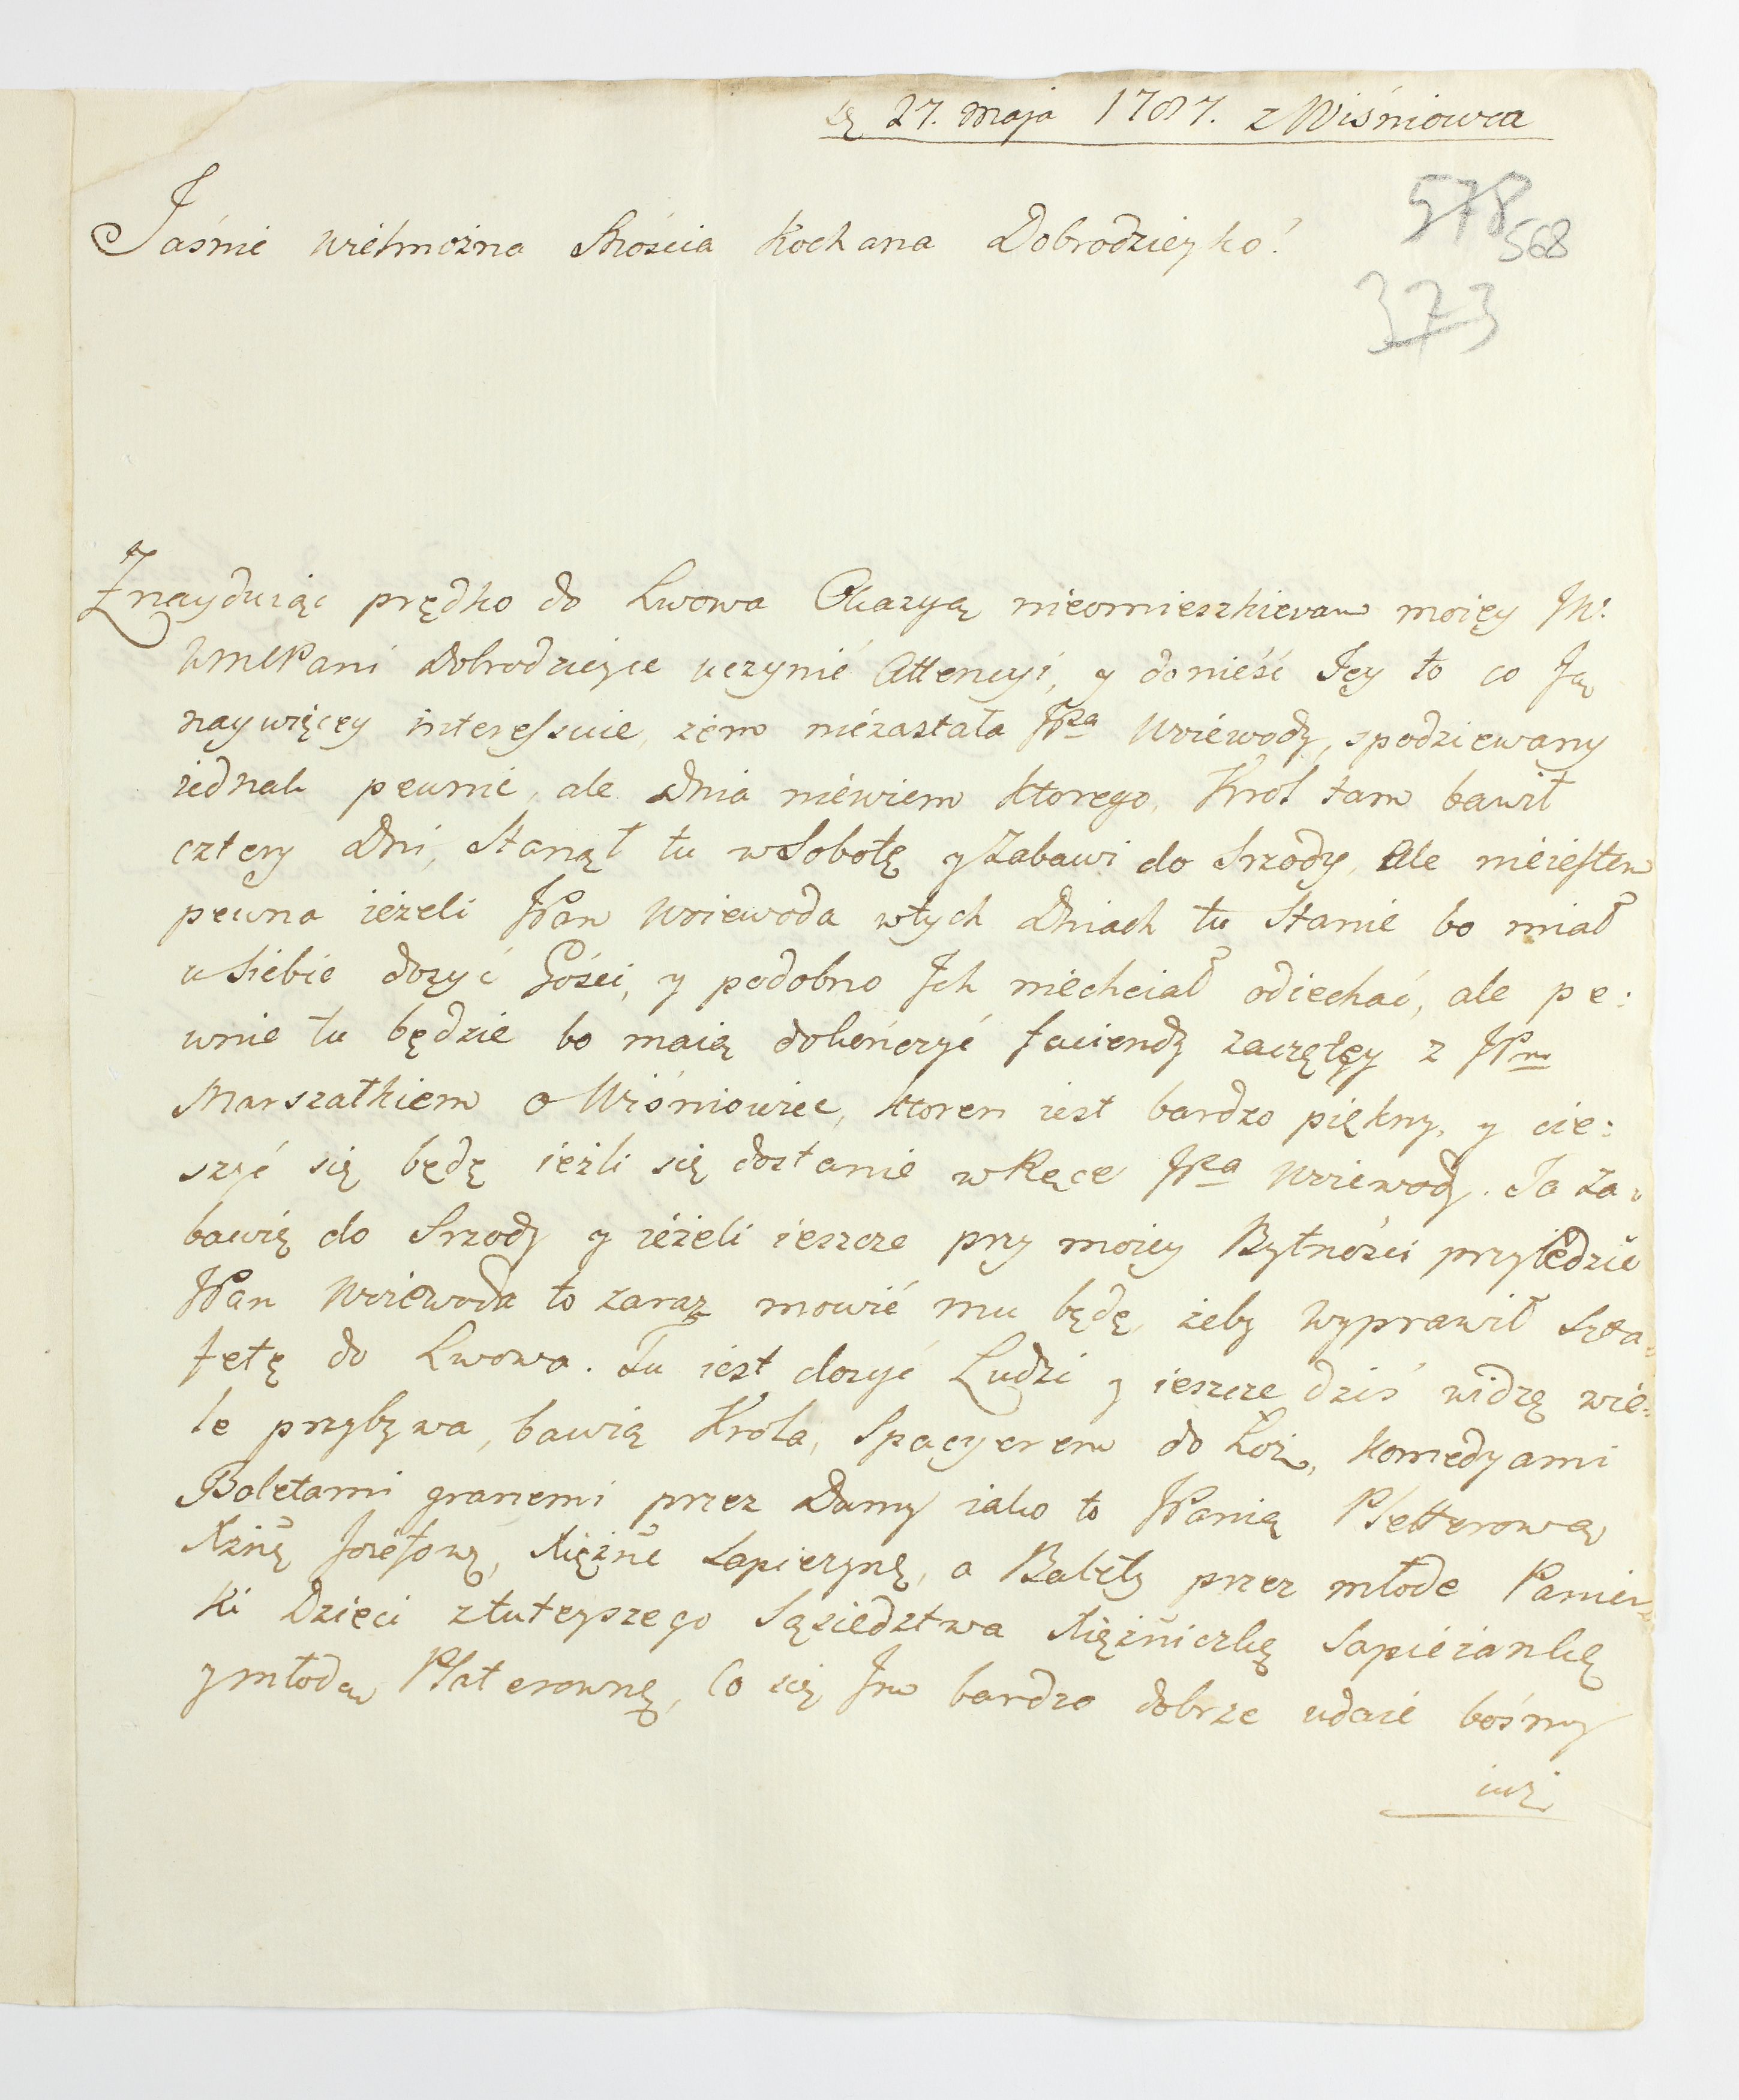 27. Maja 1787. z Wiśniowca
578
568
373
Jaśnie wielmożna Siościa Kochana Dobrodzieyko!
Znayduiąc prędko do Lwowa Okazyą nieomieszkiwam moięy JW:
WMCPani Dobrodzieyce uczynić Attencyi, y donieść Jęy to co Ją
naywięcey interessuie, żem niezastała JPa Woiewody, spodziewany
iednak pewnie, ale Dnia niewiem ktorego, Krol tam bawił
cztery Dni, Stanął tu w Sobotę y Zabawi do Srzody, Ale nieiestem
pewna ieżeli JPan Woiewoda wtych Dniach tu Stanie bo miał
u Siebie dosyć Gości, y podobno Jch niechciał odiechać, ale pe:
wnie tu będzie bo maią dokończyć faciendy zaczętęy z JPm
Marszałkiem o Wiśniowiec, ktoren iest bardzo piękny, y cie:
szyć się będę ieżli się dostanie w Ręce JPa Woiewody. Ja Za:
bawię do Srzody y ieżeli ieszcze przy moiey Bytności przyiedzie
JPan Woiewoda to zaraz mowić mu będę, żeby wyprawił Szta:
fetę do Lwowa. Tu iest dosyć Ludzi y ieszcze dziś widzę wie:
le przybywa, bawią Krola, Spacyerem do Łoż, Komedyami
Baletami graniemi przez Damy iako to JPanią Pletterową
Xżnę Jozefową, Xiężnę Sapieżynę, a Balety przez młode Panien:
ki Dzieci ztuteyszego Sąsiedztwa Xiężniczkę Sapieżankę
y młodą Platerownę, Co się Jm bardzo dobrze udaie bośmy
iuż